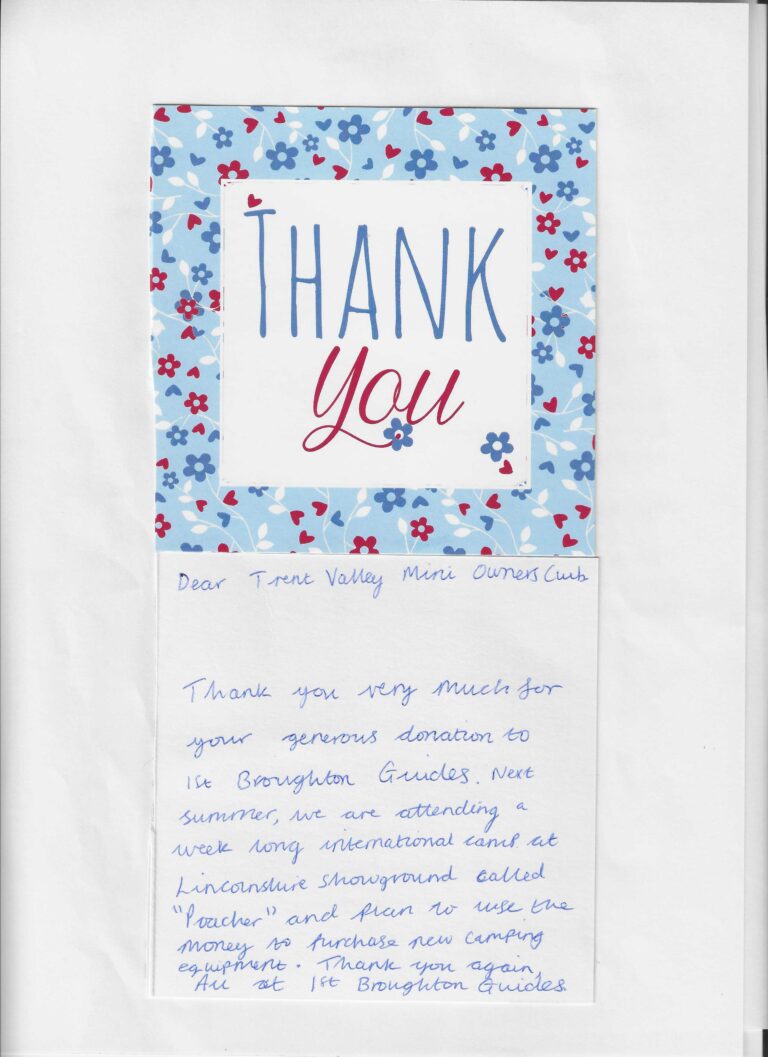 THANK
You
Dear Trent Valley Mini Owners Club
Thank you very much for
your generous donation to
1st Broughton Guides. Next
summer, we are attending a
week long international camp at
Lincolnshire Showground called
"Poacher" and plan to use the
money to purchase new camping
equipment. Thank you again,
All at 1st Broughton Guides.